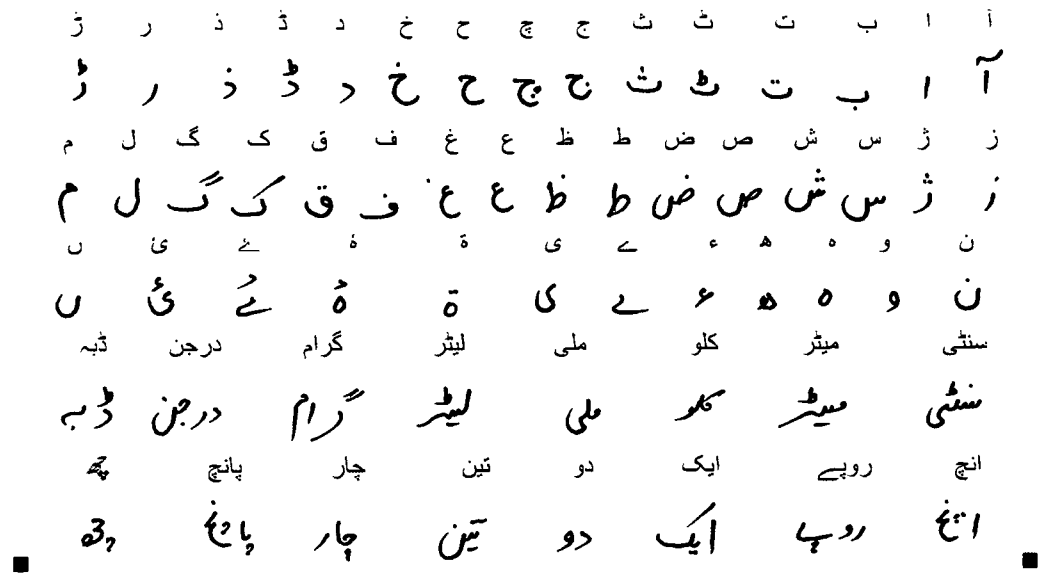 آ ا ب ت ٹ ث ج چ ح خ د ڈ ذ ر ڑ
آ ا ب ت ٹ ث ج چ ح خ د ڈ ذ ر ڑ
ز ژ س ش ص ض ط ظ ع غ ف ق ک گ ل م
ز ژ س ش ص ض ط ظ ع غ ف ق ک گ ل م
ن و ہ ھ ء ے ی ۃ ۂ ۓ ئ ں
ن و ہ ھ ء ے ی ۃ ۂ ۓ ئ ں
سنٹی میٹر کلو ملی لیٹر گرام درجن ڈبہ
سنٹی میٹر کلو ملی لیٹر گرام درجن ڈبہ
انچ روپے ایک دو تین چار پانچ چھ
انچ روپے ایک دو تین چار پانچ چھ